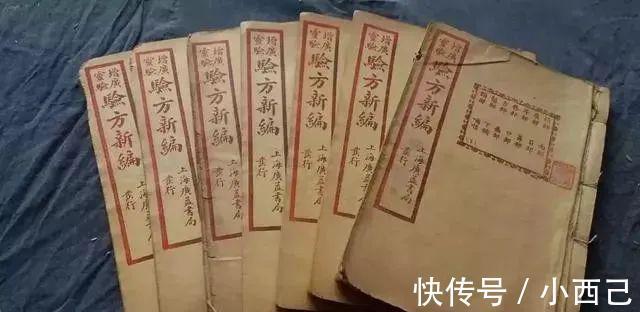 增廣
靈驗
驗方新編
上海廣益書局
發行
增廣
靈驗
驗方新編
上海廣益書局
發行
增廣
靈驗
驗方新編
上海廣益書局
發行
增廣
靈驗
驗方新編
上海廣益書局
發行
增廣
靈驗
驗方新編
上海廣益書局
發行
增廣
靈驗
驗方新編
上海廣益書局
發行
增廣
靈驗
驗方新編
快传号 / 小西己